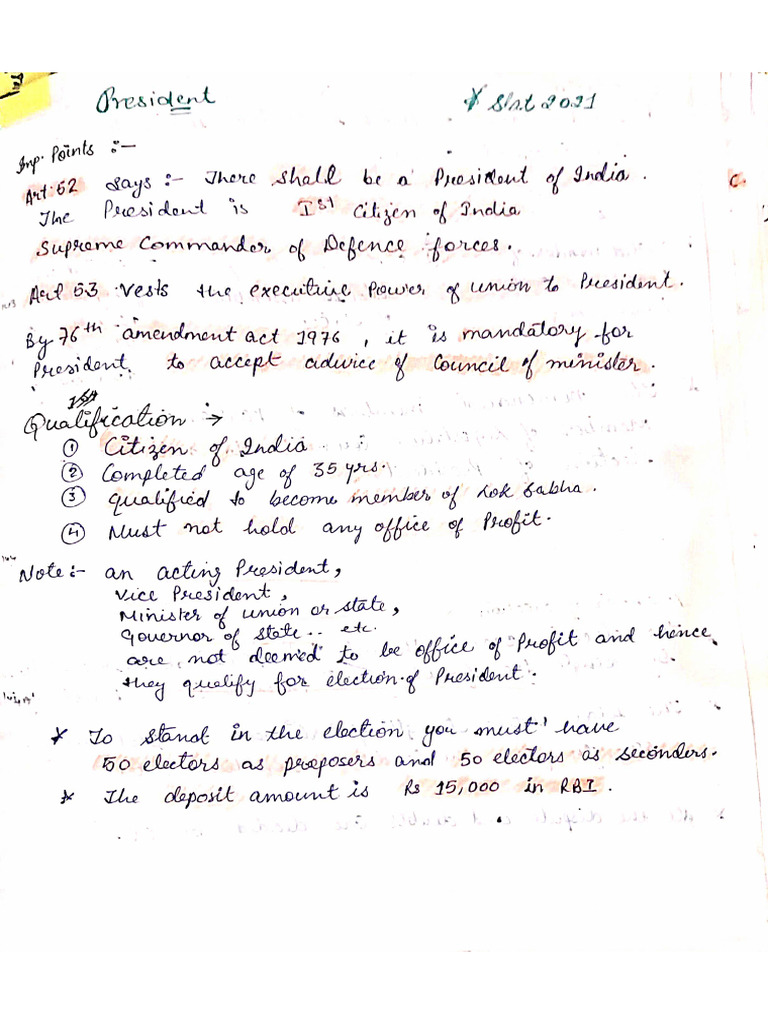 President
* Stat 2021
Imp. Points :-
Art: 52 says :- There shall be a President of India.
The President is Ist Citizen of India
Supreme Commander of Defence forces.
Art 53 Vests the executive Power of union to President.
By 76th amendment act 1976, it is mandatory for
President to accept advice of Council of minister.
Qualification :→
① Citizen of India
② Completed age of 35 yrs.
③ qualified to become member of Lok Sabha.
④ Must not hold any office of Profit.
Note:- an acting President,
Vice President,
Minister of union or state,
Governor of state.. etc.
are not deemed to be office of Profit and hence
they qualify for election of President.
* To stand in the election you must have
50 electors as proposers and 50 electors as seconders.
* The deposit amount is Rs 15,000 in RBI.
C.